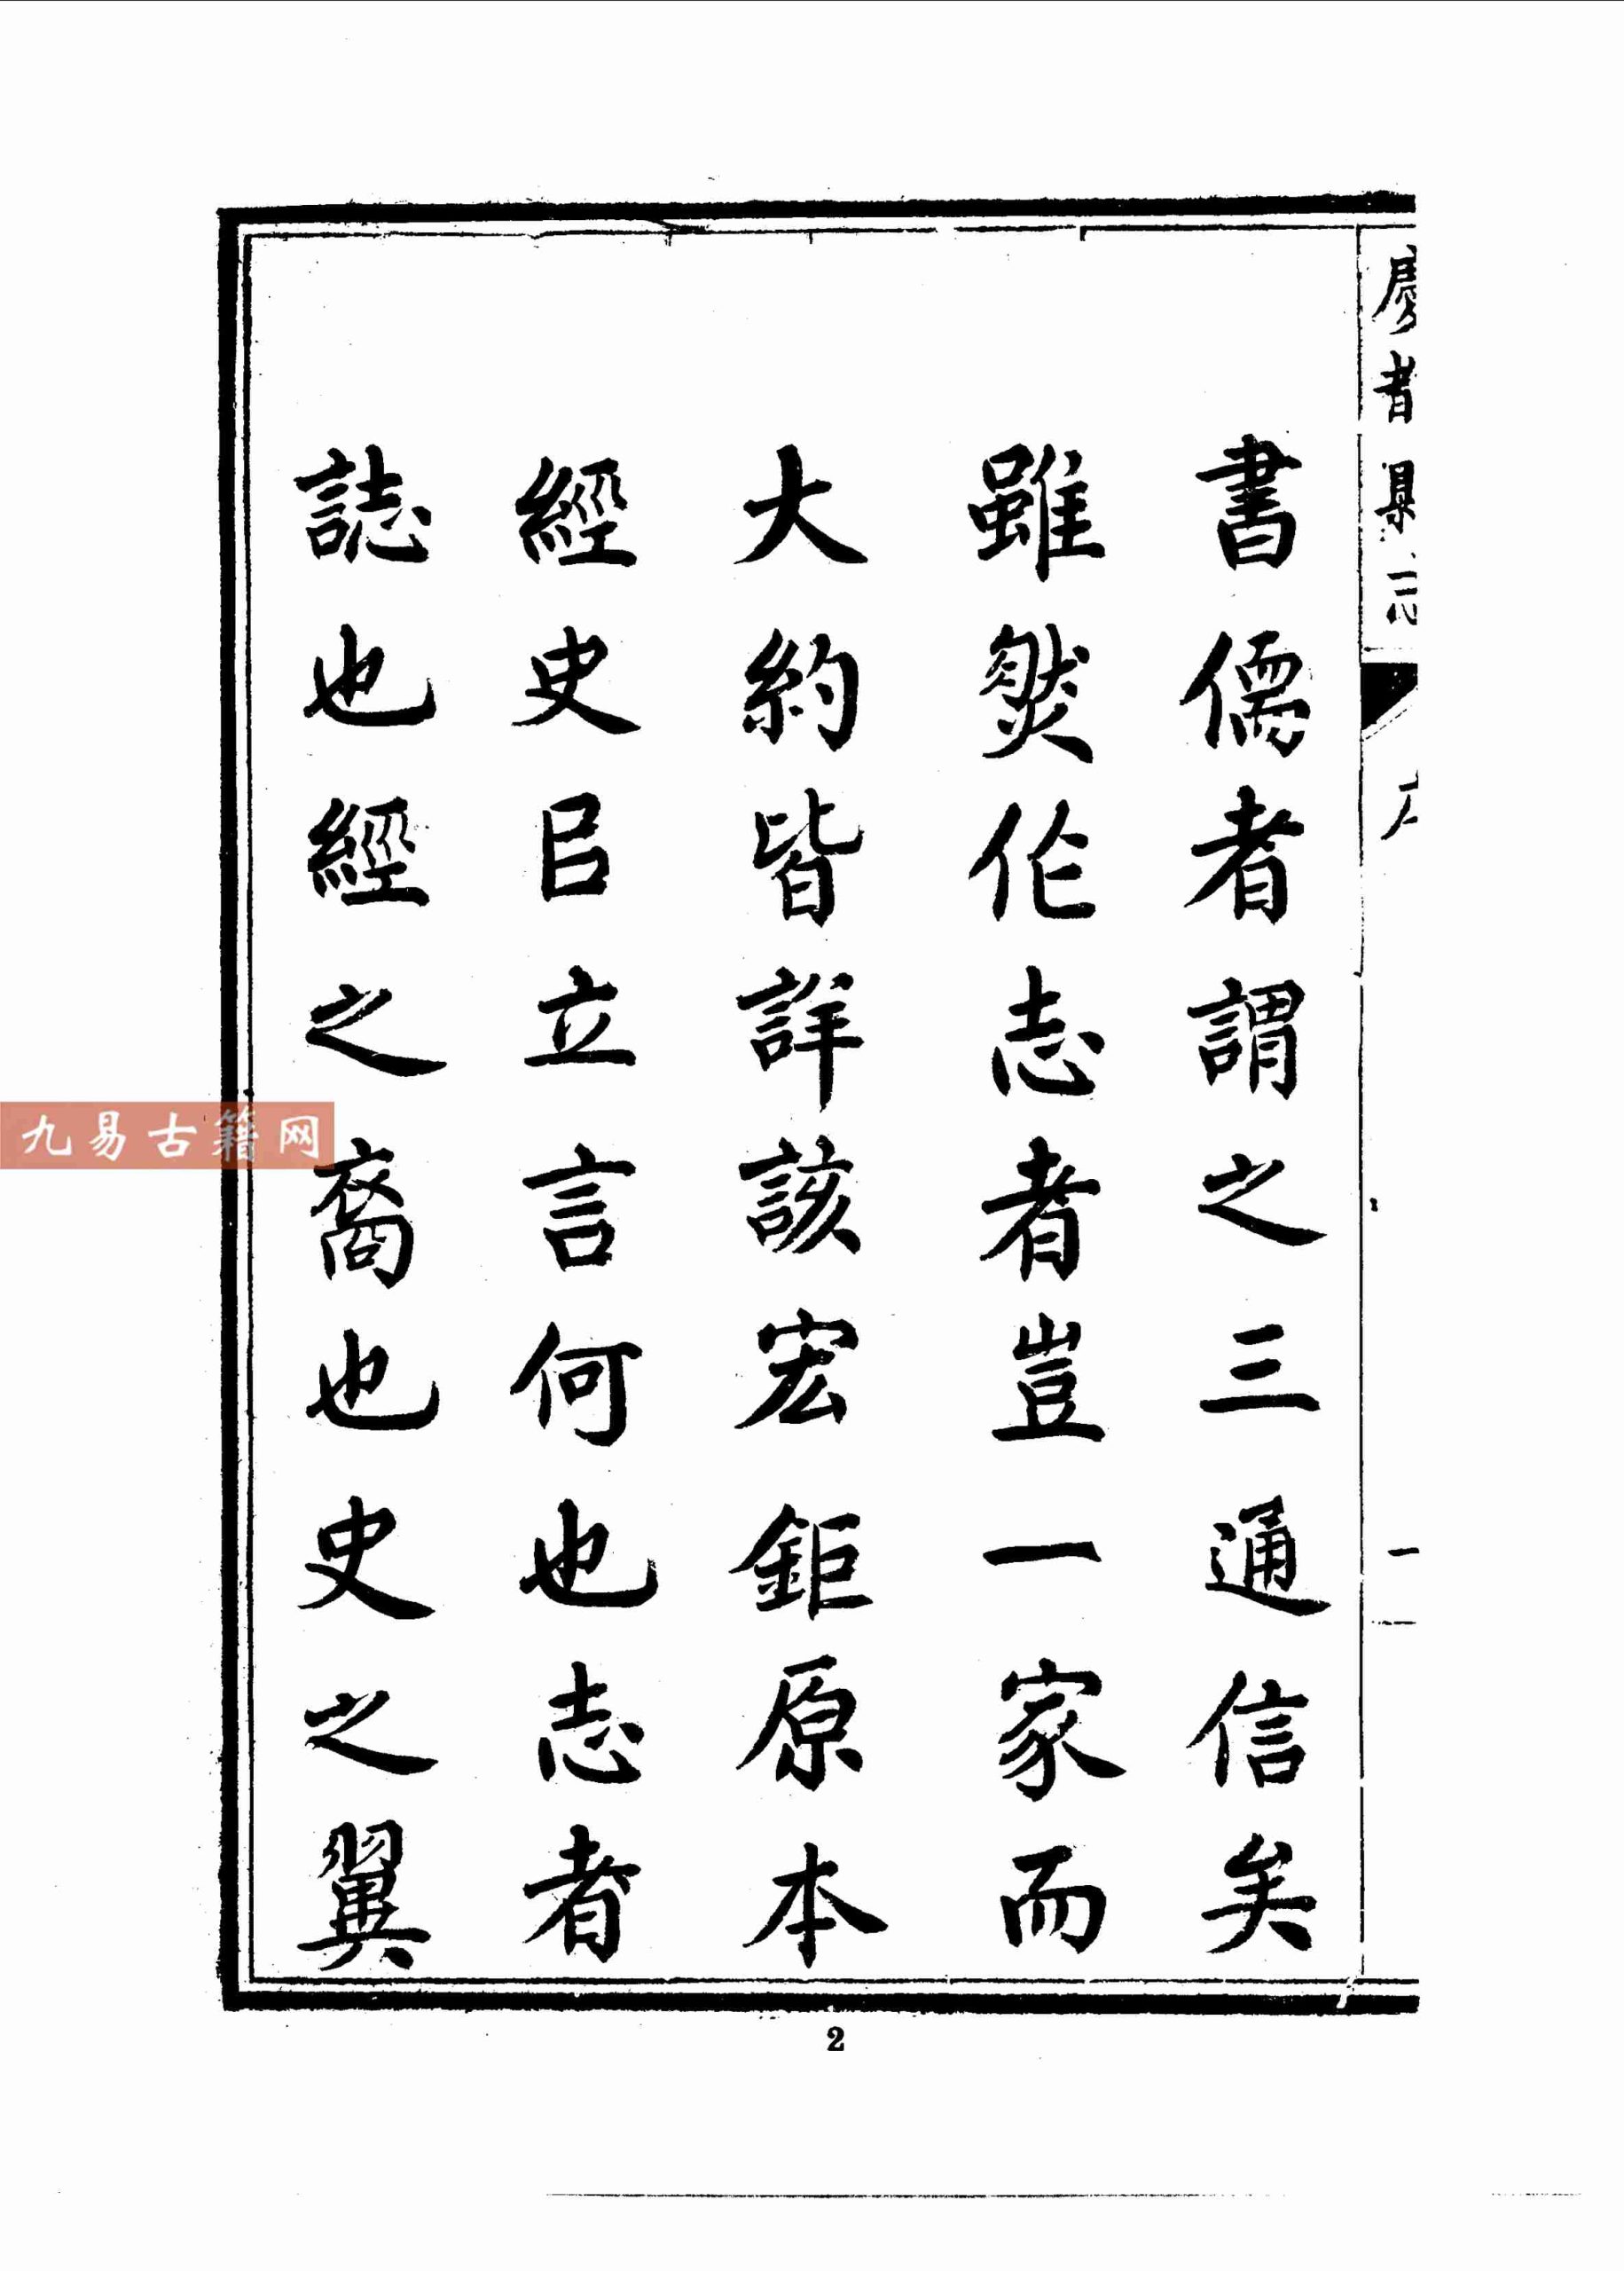 書儒者謂之三通信矣
雖然作志者豈一家而
大約皆詳該宏鉅原本
經史㠯立言何也志者
誌也經之裔也史之翼
一
2
九易古籍网